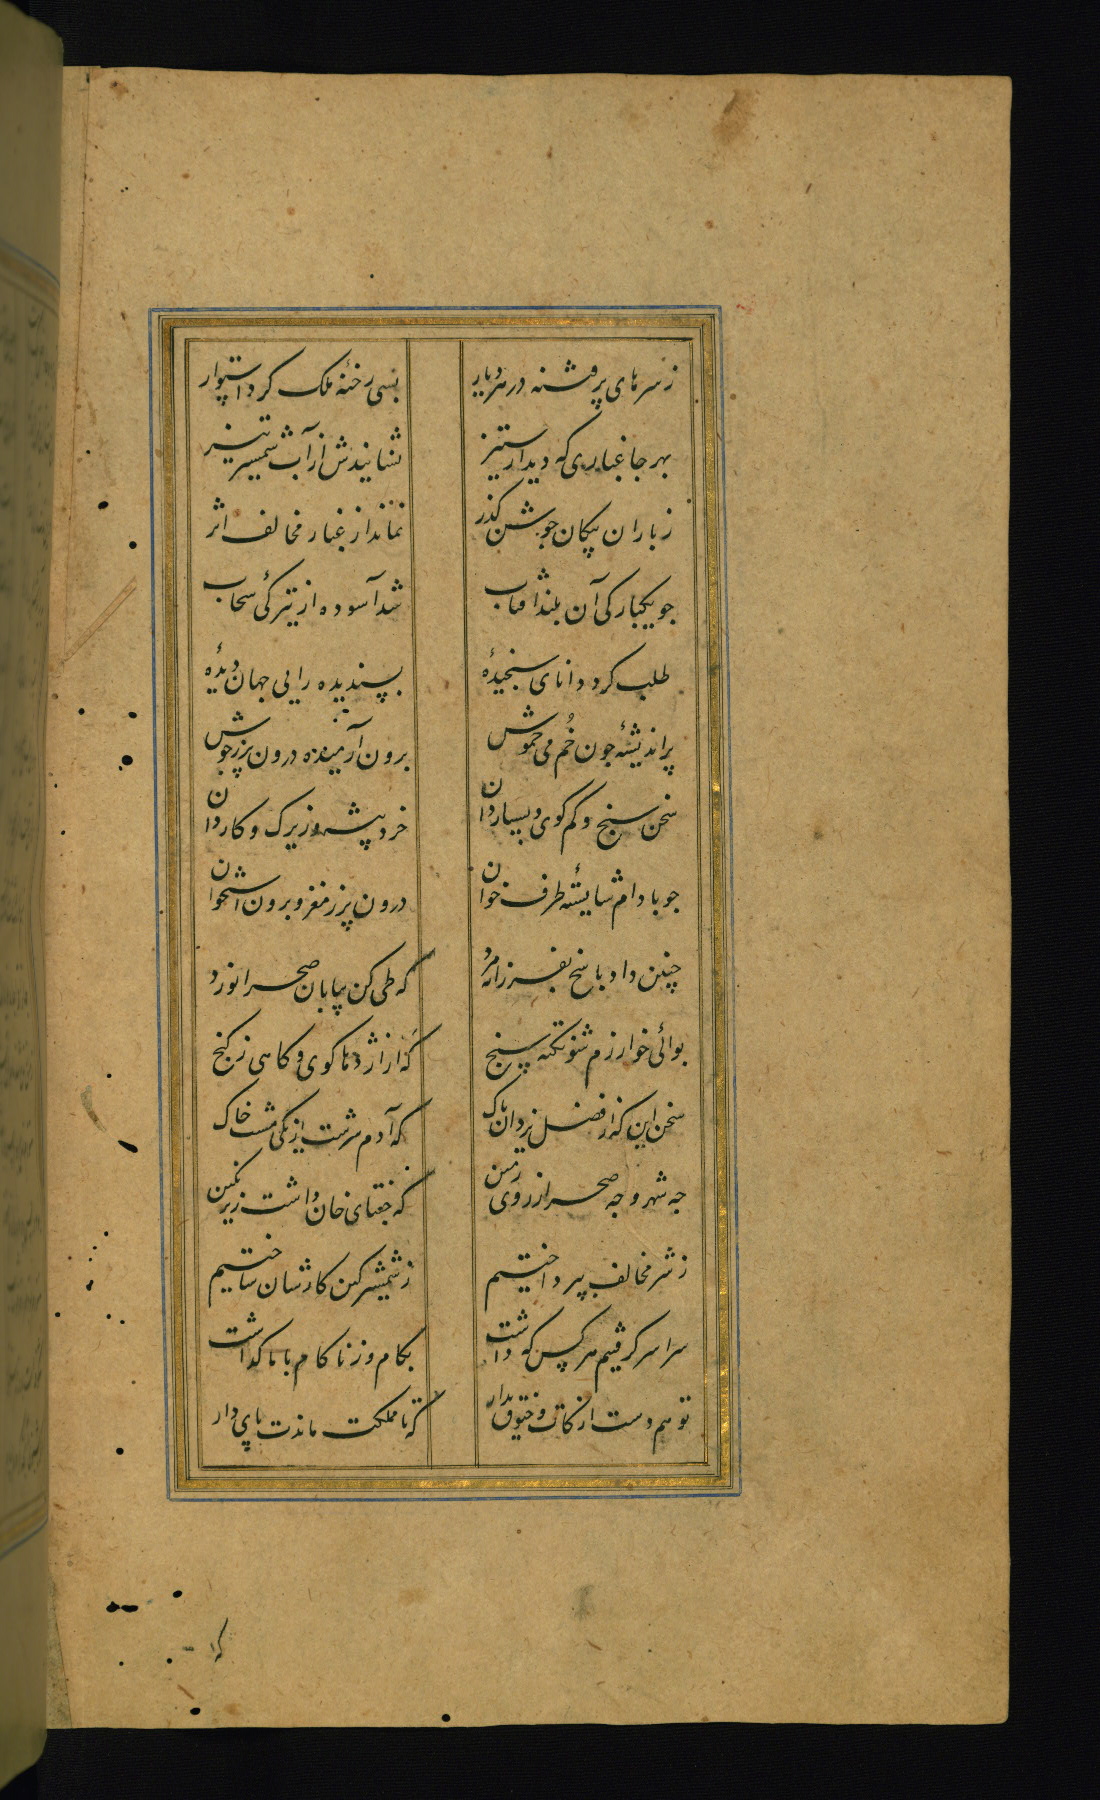 ز سرهای پر فتنه در هر دیار بسی رخنهٔ ملک کرد استوار
بهر جا غباری که دید از ستیز نشانیدش از آب شمشیر تیز
ز باران پیکان جوشن گذر نماند از غبار مخالف اثر
جو یکبارکی آن بلند آفتاب شد آسوده از تیرکیٔ سحاب
طلب کرد دانای سنجیدهٔ پسندیده رایی جهان دیدهٔ
پر اندیشهٔ جون خُم می خموش برون آرمیده درون پر ز جوش
سخن سنج و کم کوی و بسیار دان خرد پیشه و زیرک و کاردان
جو بادام شایستهٔ طرف خوان درون پر ز مغز و برون استخوان
چنین داد پاسخ بفرزانه مرد که طی کن بیابان صحرا نورد
بوائی خوارزم شو نکته سنج که از اژدها کوی و کاهی ز کنج
سخن این که از فضل یزدان پاک که آدم سرشت از یکی مشت خاک
جه شهر و جه صحرا ز روی زمین که جغتای خان داشت زیر نکین
ز شر مخالف بپرداختیم ز شمشیر کین کارشان ساختیم
سراسر کرفتیم هر کس که داشت بکام و ز ناکام با ما کذاشت
تو هم دست از کات و خیوق بدار که تا مملکت ماندت پای دار